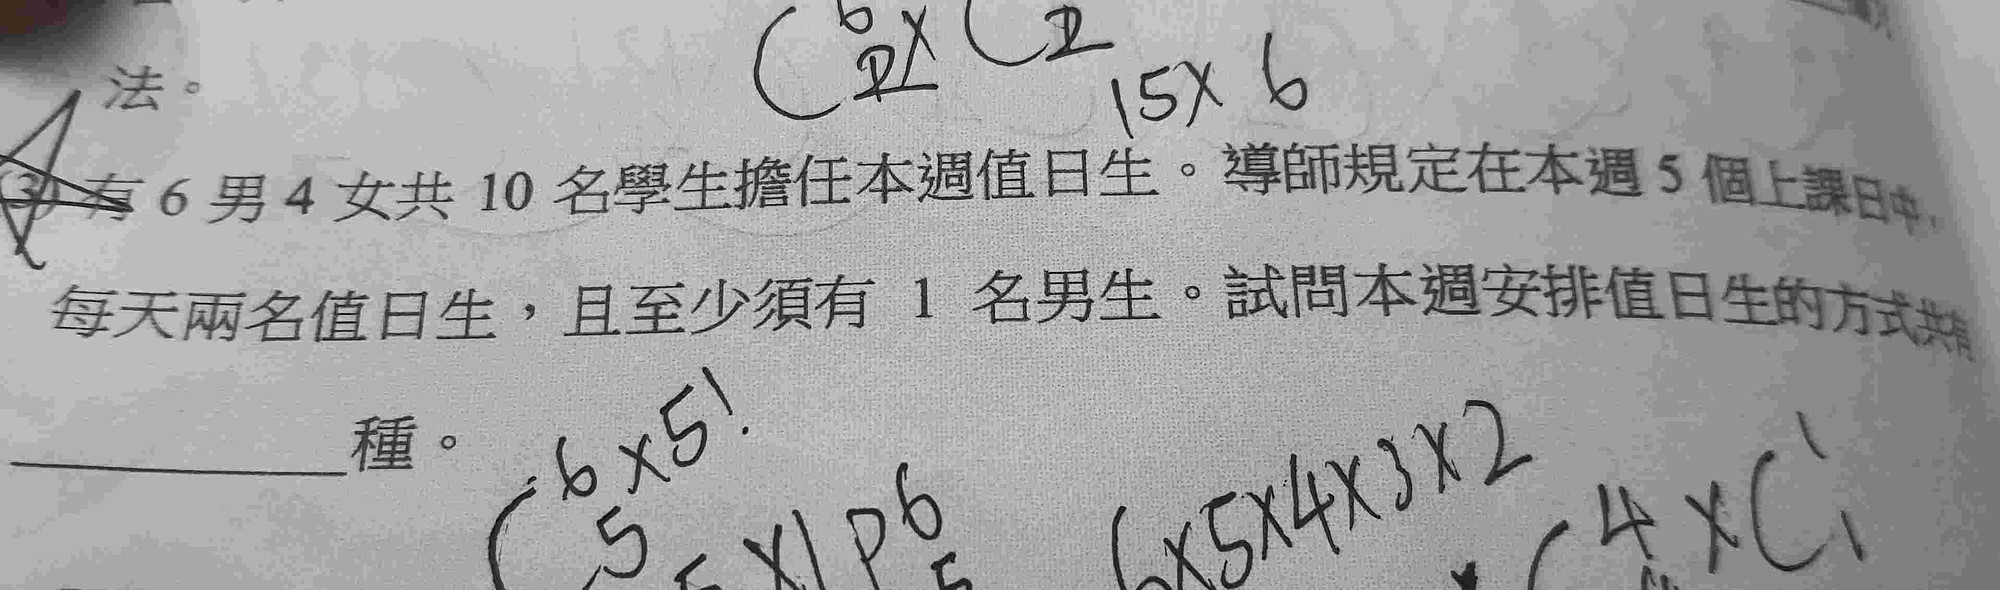 C 6 2 × C 2
15 × 6
法。
(3) 有 6 男 4 女共 10 名學生擔任本週值日生。導師規定在本週 5 個上課日中,
每天兩名值日生,且至少須有 1 名男生。試問本週安排值日生的方式共有
種。
C 6 5 × 5!
P 6 5
6×5×4×3×2
C 4 × C 1 1